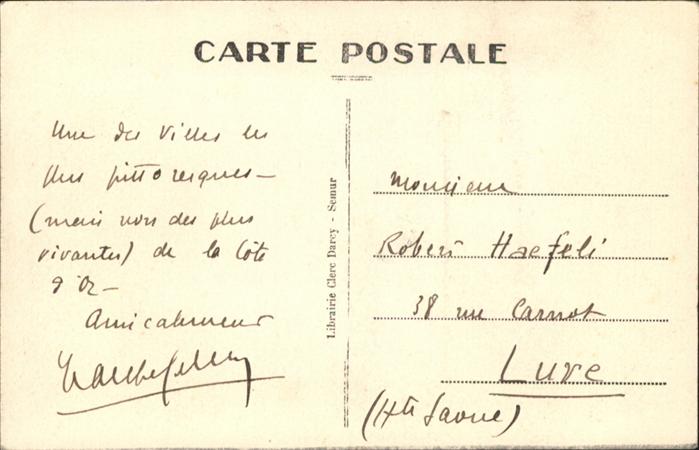 CARTE POSTALE
Une des villes les
plus pittoresques—
(mais non des plus
vivantes) de la Côte
d'Or—
Amicalement
Librairie Clerc Darcy - Semur
Monsieur
Robert Haefeli
38 rue Carnot
Lure
(Hte Saone)